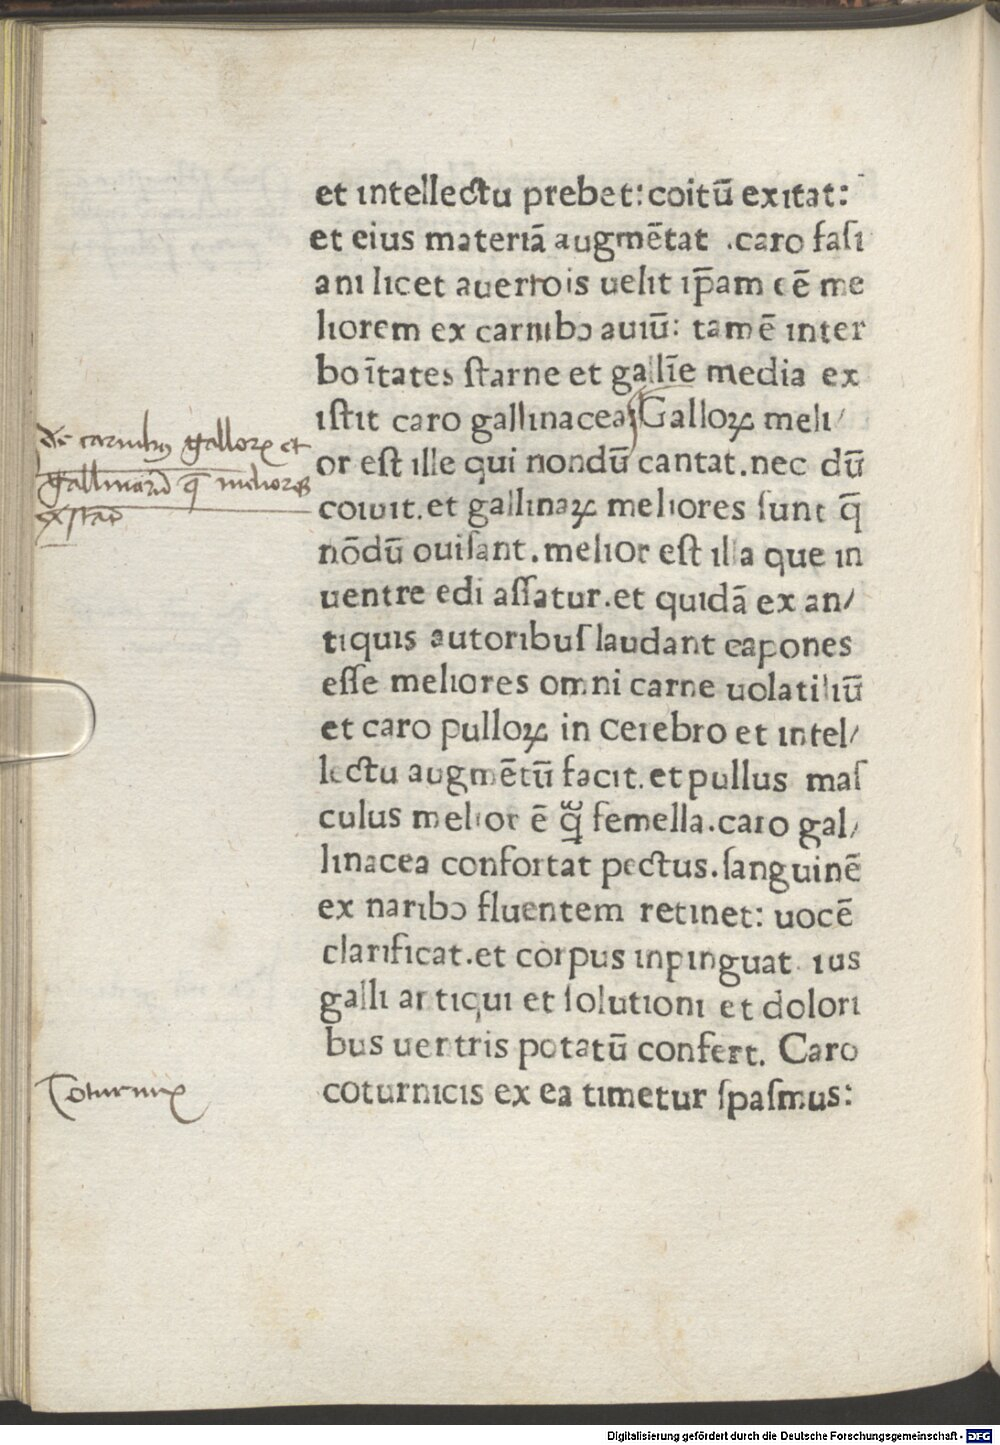 et intellectu prebet: coitū exitat:
et eius materiā augmētat .caro faſi
ani licet auerrois uelit ip̄am eē me
liorem ex carnibꝯ auiū: tamē inter
boītates ſtarne et gallīe media ex
iſtit caro gallinacea. Galloꝝ meli/
or eſt ille qui nondū cantat. nec dū
coiuit. et gallinaꝝ meliores ſunt q̄
nōdū ouiſant. melior eſt illa que in
uentre edi aſſatur. et quidā ex an/
tiquis autoribuſ laudant capones
eſſe meliores omni carne uolatiliū
et caro pulloꝝ in cerebro et intel/
lectu augmētū facit. et pullus maſ
culus melior ē ꝙ̃ femella. caro gal/
linacea confortat pectus. ſanguinē
ex naribꝯ fluentem retinet: uocē
clarificat. et corpus inpinguat. ius
galli antiqui et ſolutioni et dolori
bus uentris potatū confert. Caro
coturnicis ex ea timetur ſpaſmus:
de carnibus galloꝝ et
gallinarū q̄ meliores
exſtant
Coturnix
Digitalisierung gefördert durch die Deutsche Forschungsgemeinschaft - DFG